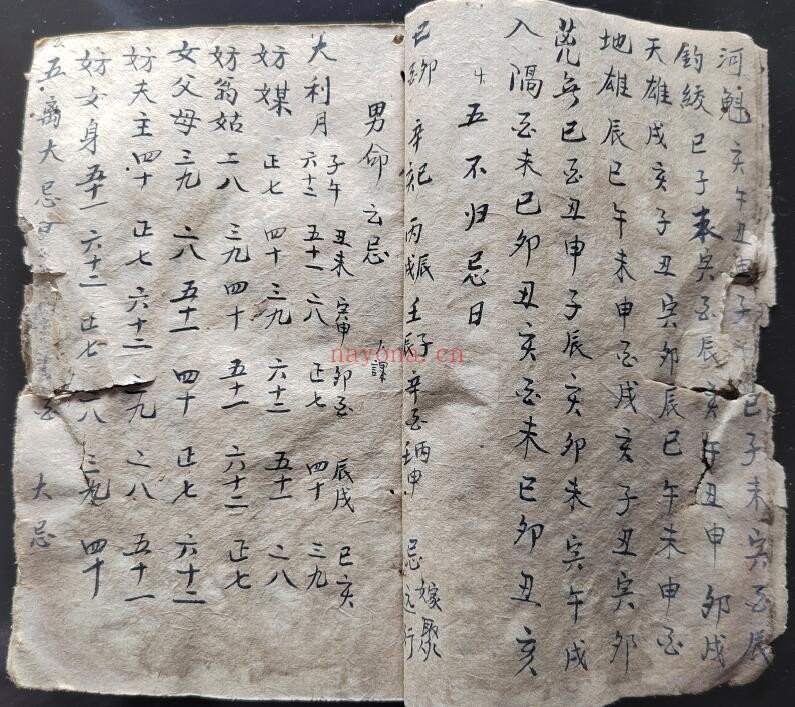 河魁 亥午丑申子 巳子未寅酉辰
钓絞 巳子未寅酉辰亥午丑申卯戌
天雄 戌亥子丑寅卯辰巳午未申酉
地雄 辰巳午未申酉戌亥子丑寅卯
荒芜 巳酉丑申子辰亥卯未寅午戌
入隔 酉未巳卯丑亥酉未巳卯丑亥
五不归忌日
己卯 辛巳 丙戌 壬辰 辛酉 忌嫁聚
男命云忌
人課
子午 丑未 寅申 卯酉 辰戌 巳亥
大利月 六十二 五十一 二八 正七 四十 三九
妨媒 正七 四十 三九 六十二 五十一 二八
妨翁姑 二八 三九 四十 五十一 六十二 正七
女父母 三九 二八 五十一 四十 正七 六十二
妨夫主 四十 正七 六十二 三九 二八 五十一
妨女身 五十一 六十二 正七 二八 三九 四十
五离大忌日 大忌
nayona.cn